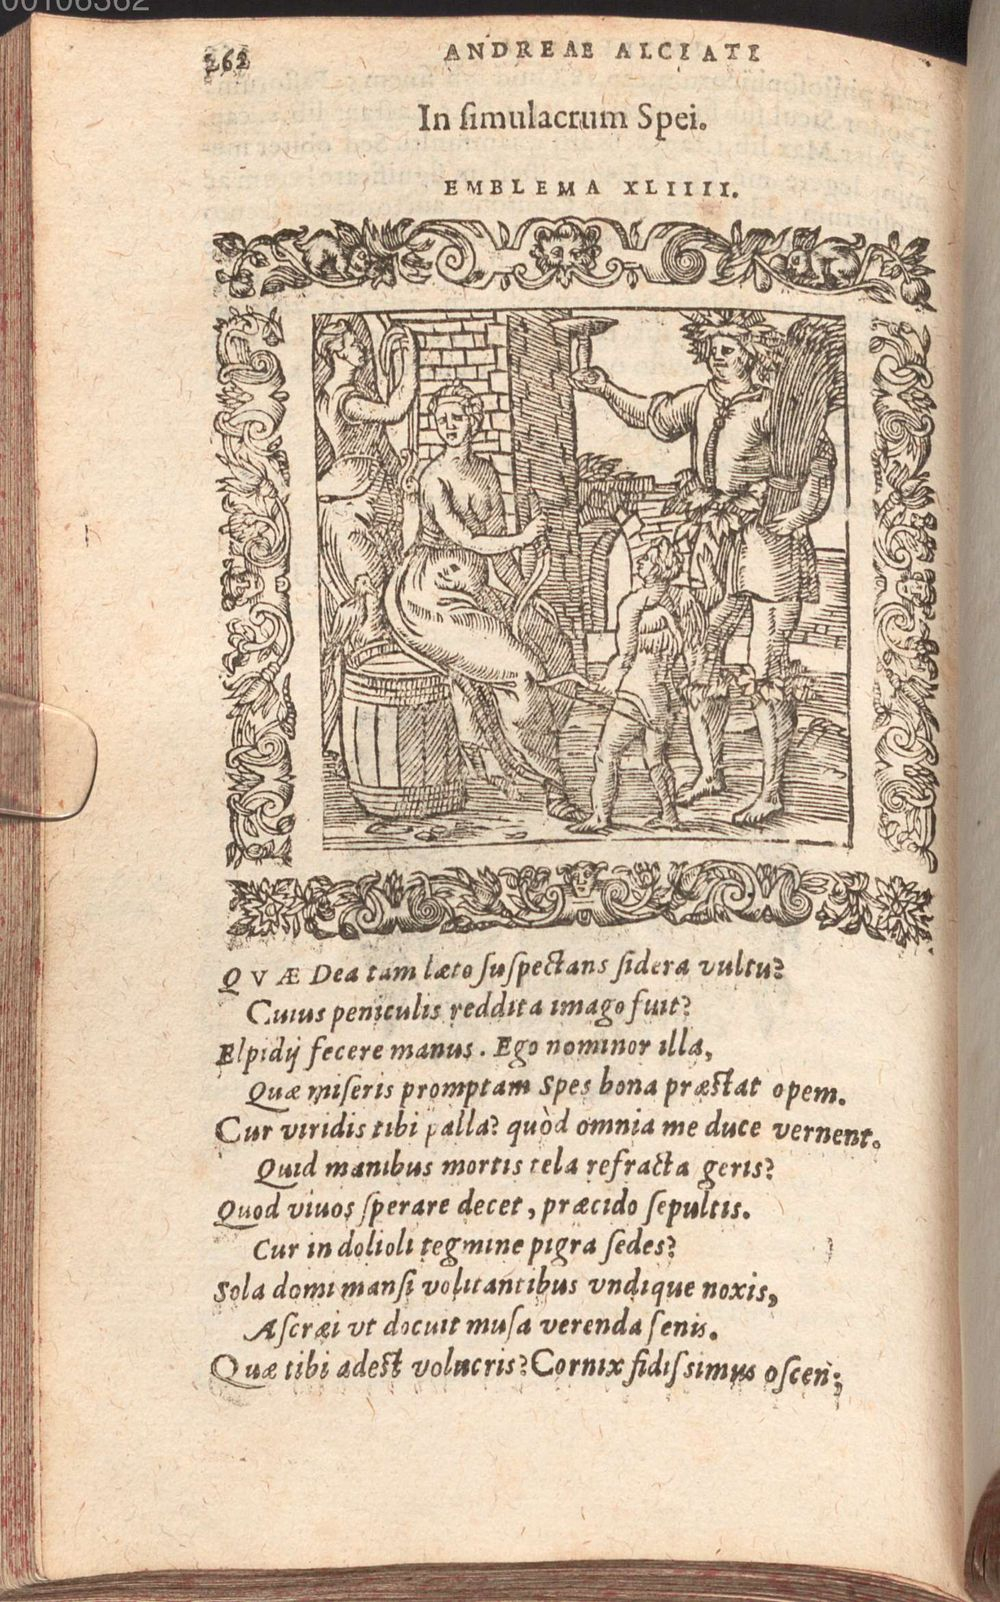 00106362
262
ANDREAE ALCIATI
In ſimulacrum Spei.
EMBLEMA XLIIII.
QVÆ Dea tam læto ſuſpectans ſidera vultu?
Cuius peniculis reddita imago fuit?
Elpidij fecere manus. Ego nominor illa,
Quæ miſeris promptam Spes bona præſtat opem.
Cur viridis tibi palla? quòd omnia me duce vernent.
Quid manibus mortis tela refracta geris?
Quod viuos ſperare decet, præcido ſepultis.
Cur in dolioli tegmine pigra ſedes?
Sola domi manſi volitantibus vndique noxis,
Aſcræi vt docuit muſa verenda ſenis.
Quæ tibi adeſt volucris? Cornix fidiſsimus oſcen;